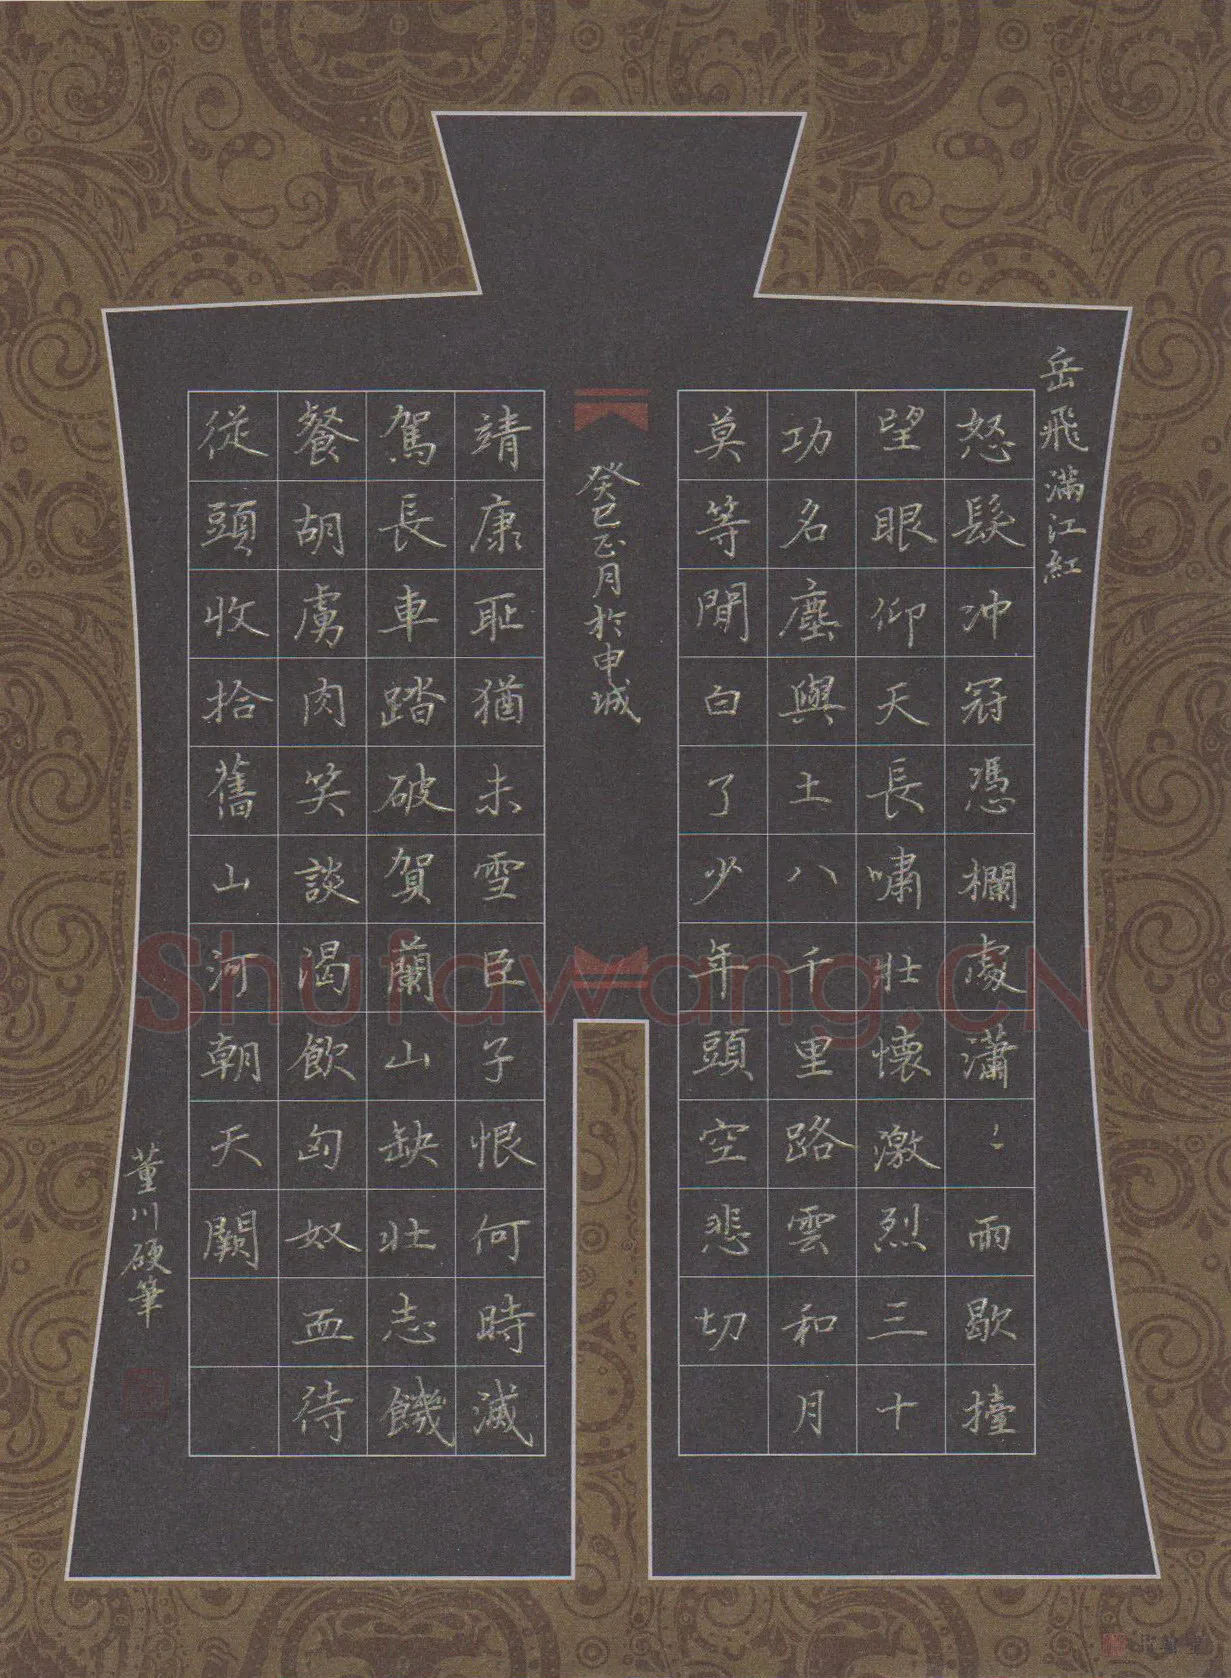 岳飛滿江紅
怒髮冲冠憑欄處瀟〻雨歇擡
望眼仰天長嘯壯懷激烈三十
功名塵與土八千里路雲和月
莫等閒白了少年頭空悲切
癸巳正月於申城
靖康耻猶未雪臣子恨何時滅
駕長車踏破賀蘭山缺壯志饑
餐胡虜肉笑談渴飲匈奴血待
從頭收拾舊山河朝天闕
董川硬筆
Shufawang.CN